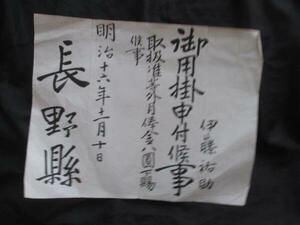 伊藤祐助
御用掛申付候事
取扱准等外月俸金八圓下賜
候事
明治十六年十二月十日
長野縣